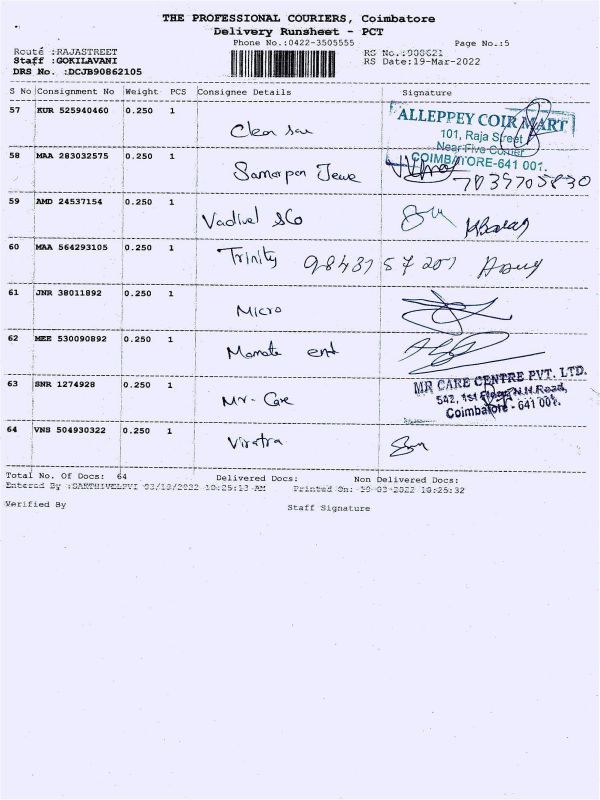 THE PROFESSIONAL COURIERS, Coimbatore
Delivery Runsheet - PCT
Phone No.:0422-3505555
Page No.:5
Route :RAJASTREET
RS No.:908621
Staff :GOKILAVANI
RS Date:19-Mar-2022
DRS No. :DCJB90862105
S No Consignment No Weight PCS Consignee Details Signature
57 KUR 525940460 0.250 1
ALLEPPEY COIR MART
101, Raja Street
Near Five Corner
COIMBATORE-641 001.
58 MAA 283032575 0.250 1
Samarpan Jewe
7039705830
59 AMD 24537154 0.250 1
Vadivel &Co
60 MAA 564293105 0.250 1
Trinity 9843757201
61 JNR 38011892 0.250 1
Micro
62 MEE 530090892 0.250 1
ent
63 SNR 1274928 0.250 1
Mr. Care
MR CARE CENTRE PVT. LTD.
542, 1st Floor, N.H.Road,
Coimbatore - 641 001.
64 VNS 504930322 0.250 1
Total No. Of Docs: 64 Delivered Docs: Non Delivered Docs:
Entered By :SAKTHIVELPVI 03/19/2022 10:25:13 AM Printed On: 19-03-2022 10:25:32
Verified By
Staff Signature